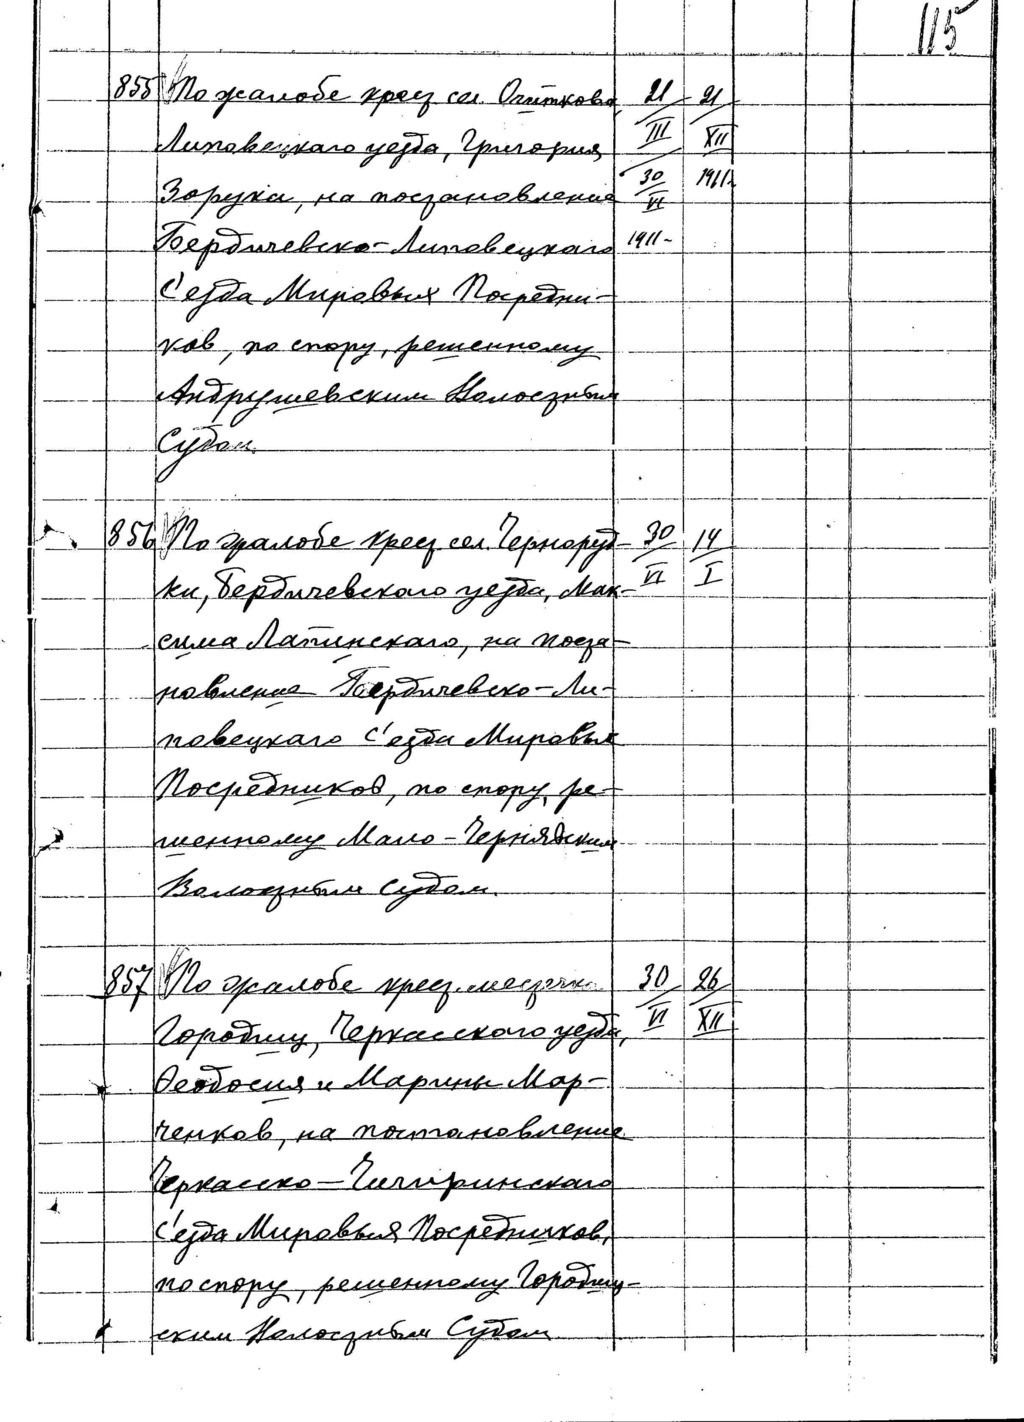 115
855 По жалобе крес. сел. Очиткова, 21/III 21/XII
Липовецкаго уезда, Григория
Зорука, на постановление 30/VI 1911 г.
Бердичевско-Липовецкаго 1911 -
С'езда Мировых Посредни-
ков, по спору, решенному
Андрушевским Волостным
Судом.
856 По жалобе крест. сел. Черноруд- 30/VI 14/I
ки, Бердичевскаго уезда, Мак-
сима Лапинскаго, на поста-
новление Бердичевско-Ли-
повецкаго С'езда Мировых
Посредников, по спору, ре-
шенному Мало-Чернявским
Волостным Судом.
857 По жалобе крест. местечка 30/VI 26/XII
Городищ, Черкасского уезда,
Феодосия и Марины Мар-
ченков, на постановление
Черкасско-Чигиринскаго
С'езда Мировых Посредников,
по спору, решенному Городищ-
ским Волостным Судом